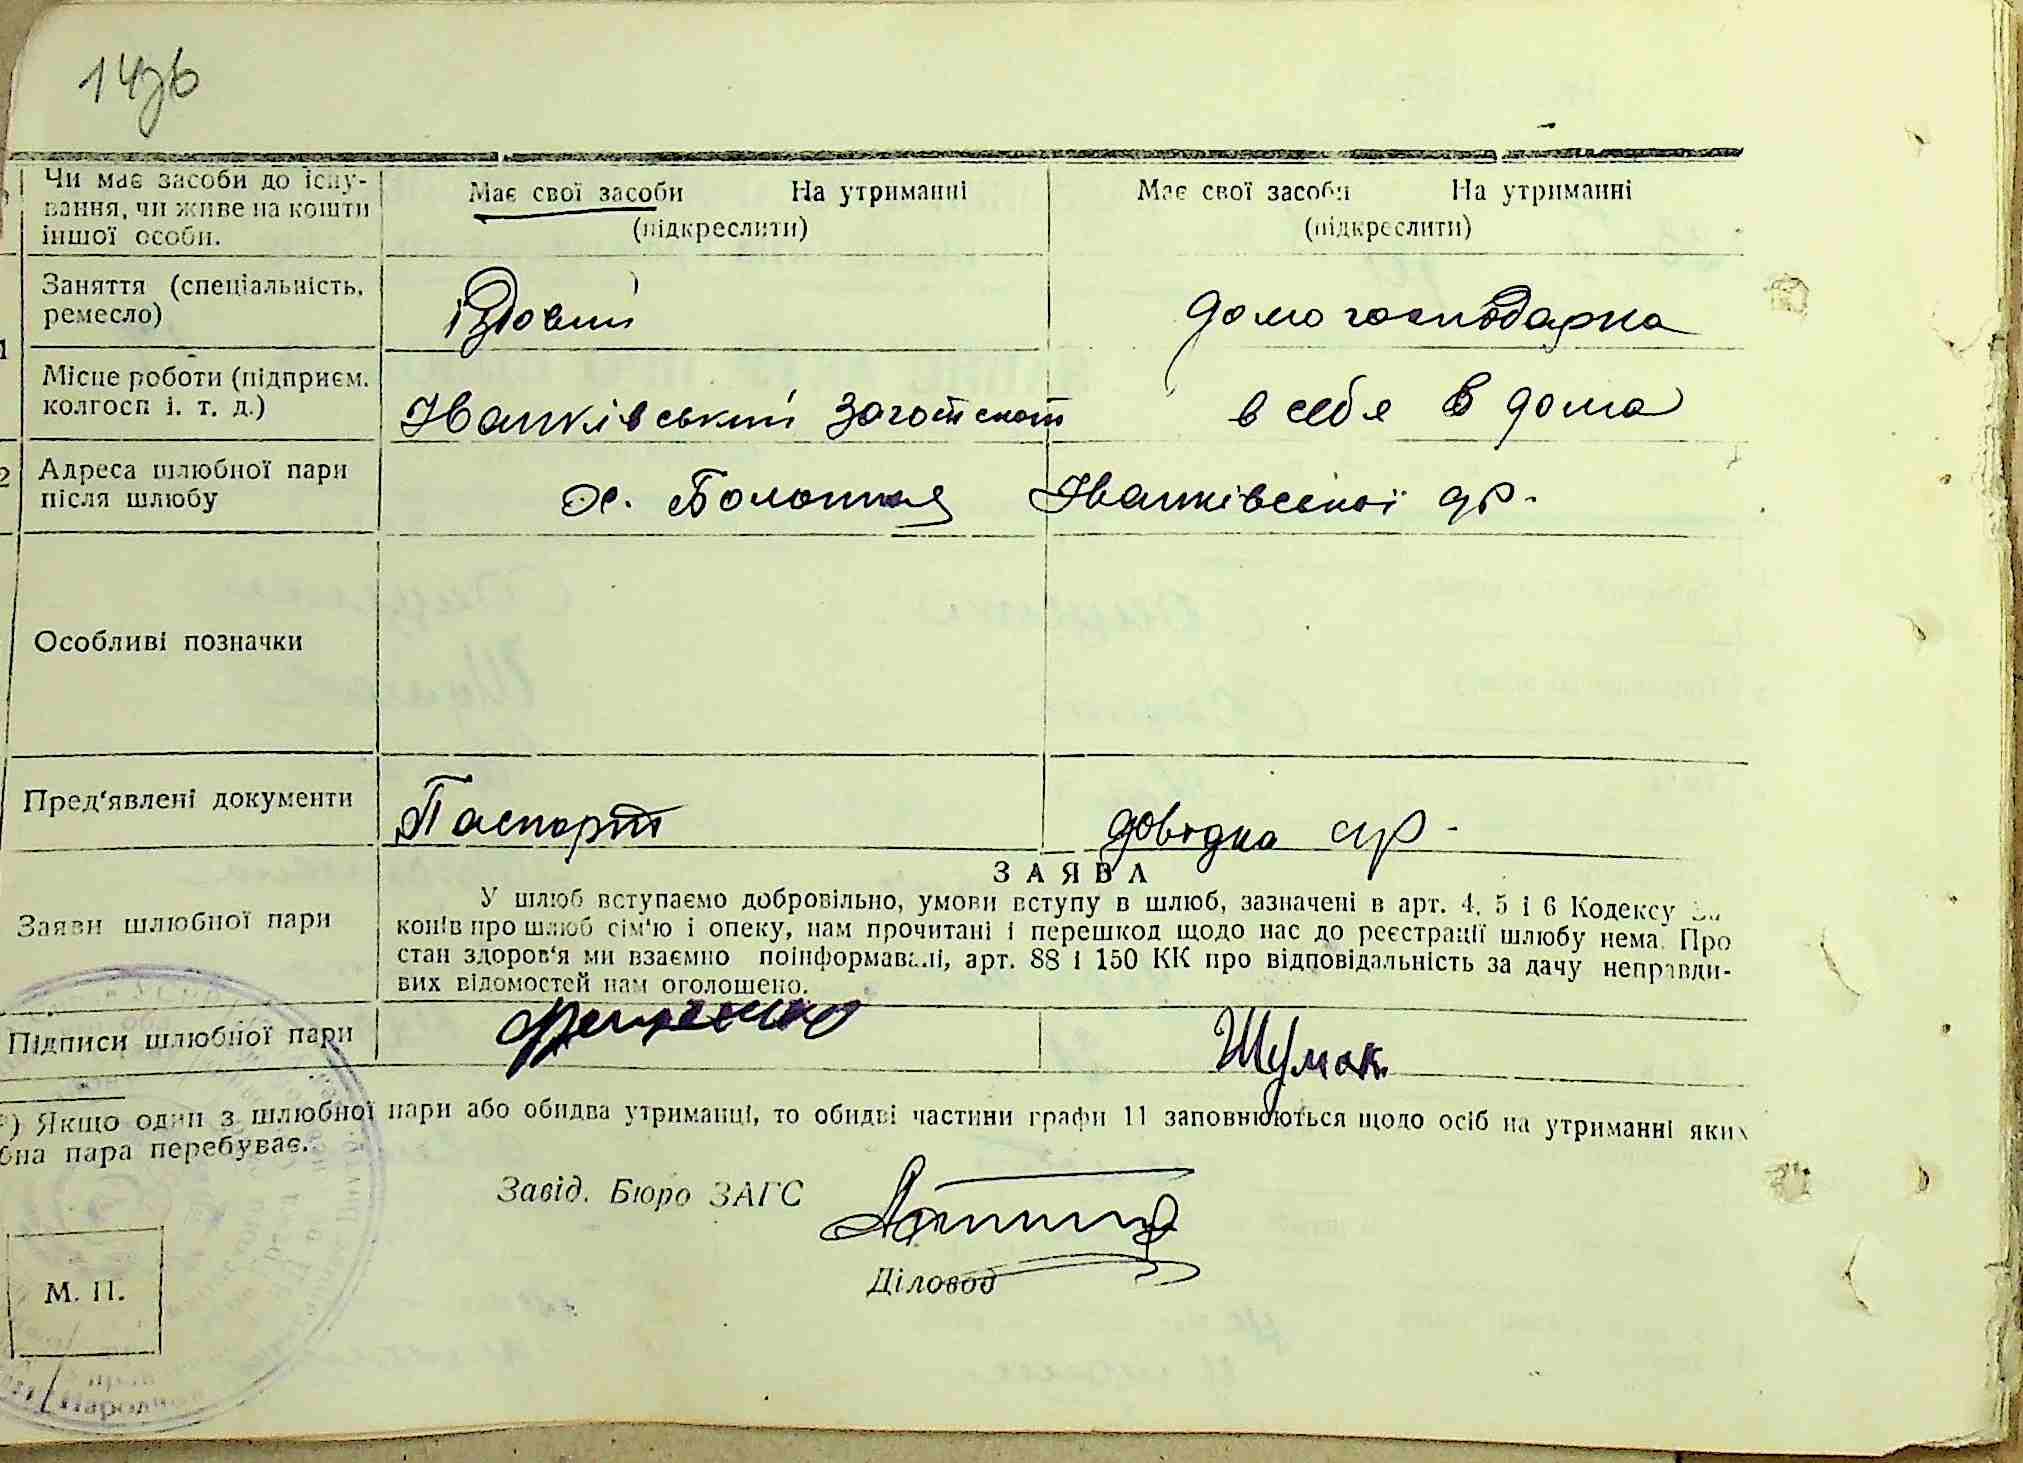 14зв
Чи має засоби до існу-
вання, чи живе на кошти
іншої особи.
Має свої засоби На утриманні
(підкреслити)
Має свої засоби На утриманні
(підкреслити)
1
Заняття (спеціальність,
ремесло)
їздовий
домогосподарка
Місце роботи (підприєм.
колгосп і. т. д.)
Іванківський Заготскот
в себе в дома
2
Адреса шлюбної пари
після шлюбу
х. Болотня Іванківської ср.
Особливі позначки
Пред'явлені документи
Паспорт
довідка ср.
Заяви шлюбної пари
ЗАЯВА
У шлюб вступаємо добровільно, умови вступу в шлюб, зазначені в арт. 4, 5 і 6 Кодексу За
конів про шлюб сім'ю і опеку, нам прочитані і перешкод щодо нас до реєстрації шлюбу нема. Про
стан здоров'я ми взаємно поінформавалі, арт. 88 і 150 КК про відповідальність за дачу неправди-
вих відомостей нам оголошено.
Підписи шлюбної пари
Шумак
*) Якщо один з шлюбної пари або обидва утриманці, то обидві частини графи 11 заповнюються щодо осіб на утриманні яких
бна пара перебуває.
Завід. Бюро ЗАГС
Діловод
М. П.